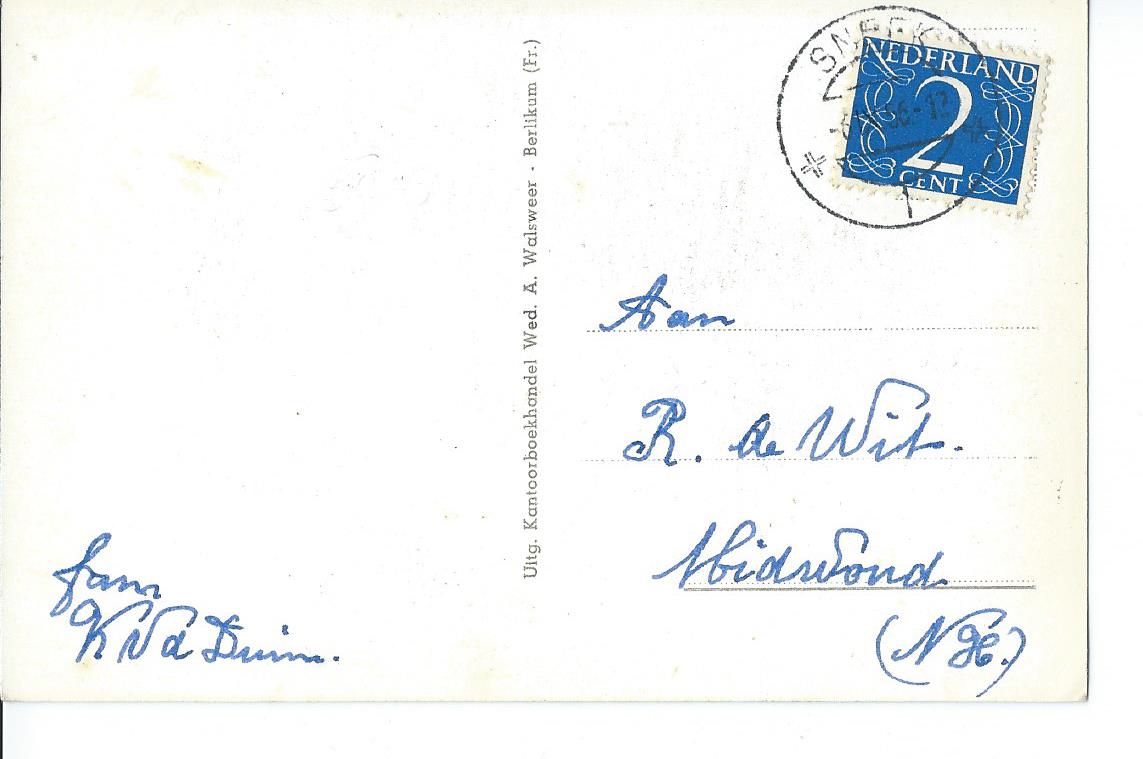 SNEEK
56.-12
NEDERLAND
2
CENT
Uitg. Kantoorboekhandel Wed. A. Walsweer - Berlikum (Fr.)
Aan
R. de Wit.
Midwoud
(NH.)
fam
K v d Duim.